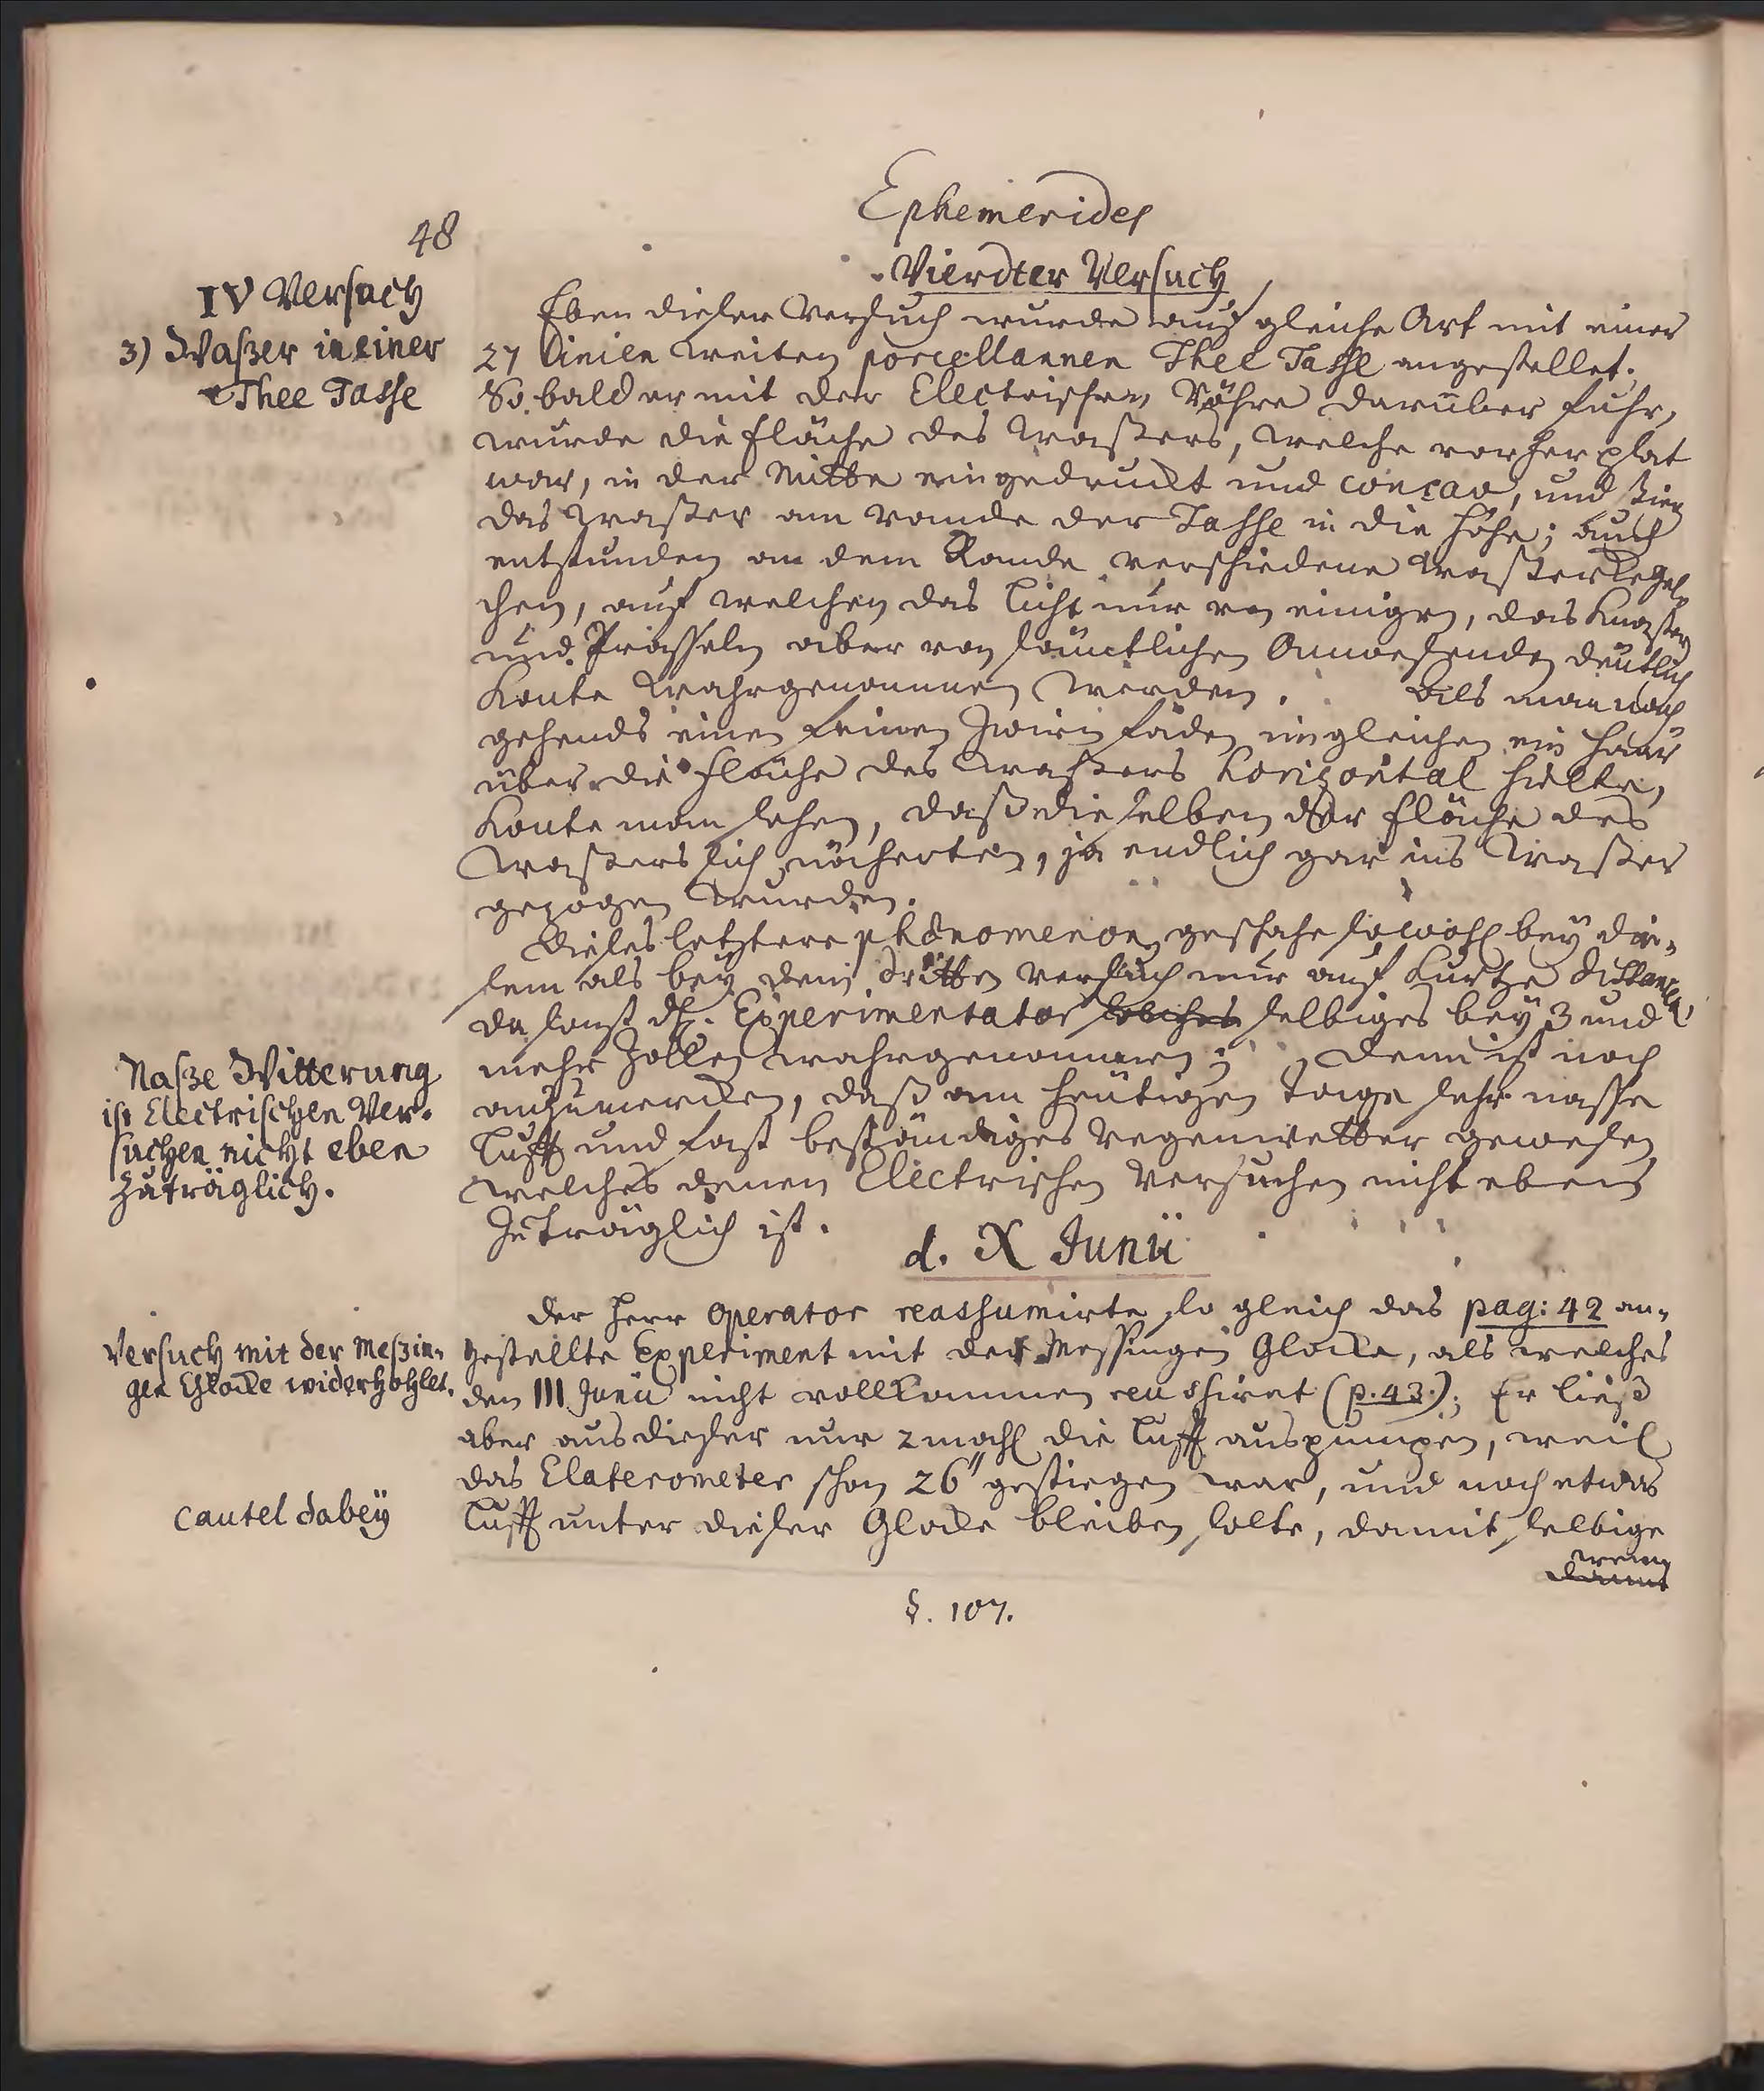 Ephemerides
48
Vierdter Versuch
IV Versuch
3) Waßer in einer
Thee Tasse
Eben dieser Versuch wurde auf gleiche Art mit einer
27 Linien weiten porcellannen Thee Tasse angestellet.
So bald er mit der Electrischen Röhre darüber fuhr,
wurde die Fläche des Waßers, welche vorher plat
war, in der Mitte eingedruckt und concav, und stieg
das Waßer am Rande der Tasse in die Höhe; auch
entstunden an dem Rande verschiedene Waßerkegel-
chen, auf welchen das Licht nur von einigen, das Knastern
und Prasseln aber von sämtlichen Anwesenden deutlich
konte wahrgenommen werden. Als man nach
gehends einen feinen Zwirn faden imgleichen ein Haar
über die Fläche des Waßers horizontal hielte,
konte man sehen, daß dieselben der Fläche des
Waßers sich näherten, ja endlich gar ins Waßer
gezogen wurden.
Dieses letztere phænomenon geschahe sowohl bey die-
sem als bey dem dritten Versuch nur auf kurtze distance,
da sonst dH. Experimentator solches selbiges bey 3 und
mehr Zollen wahrgenommen; denn ist noch
anzumercken, daß am heutigen Tage sehr nasse
Lufft und fast beständiges Regenwetter gewesen
welches denen Electrischen Versuchen nicht eben
zuträglich ist.
Naße Witterung
ist Electrischen Ver-
suchen nicht eben
zuträglich.
d. X Junii
Der Herr Operator reassumirte so gleich das pag: 42 an-
gestellte Experiment mit der Messingen Glocke, als welches
den III Junii nicht vollkommen reushiret (p. 43.); Er ließ
aber aus dieser nur 2 mahl die Lufft auspumpen, weil
das Elaterometer schon 26" gestiegen war, und noch etwas
Lufft unter dieser Glocke bleiben solte, damit selbige
wenn
damit
Versuch mit der Meßin-
gen Glocke widerhohlet.
Cautel dabey
§. 107.